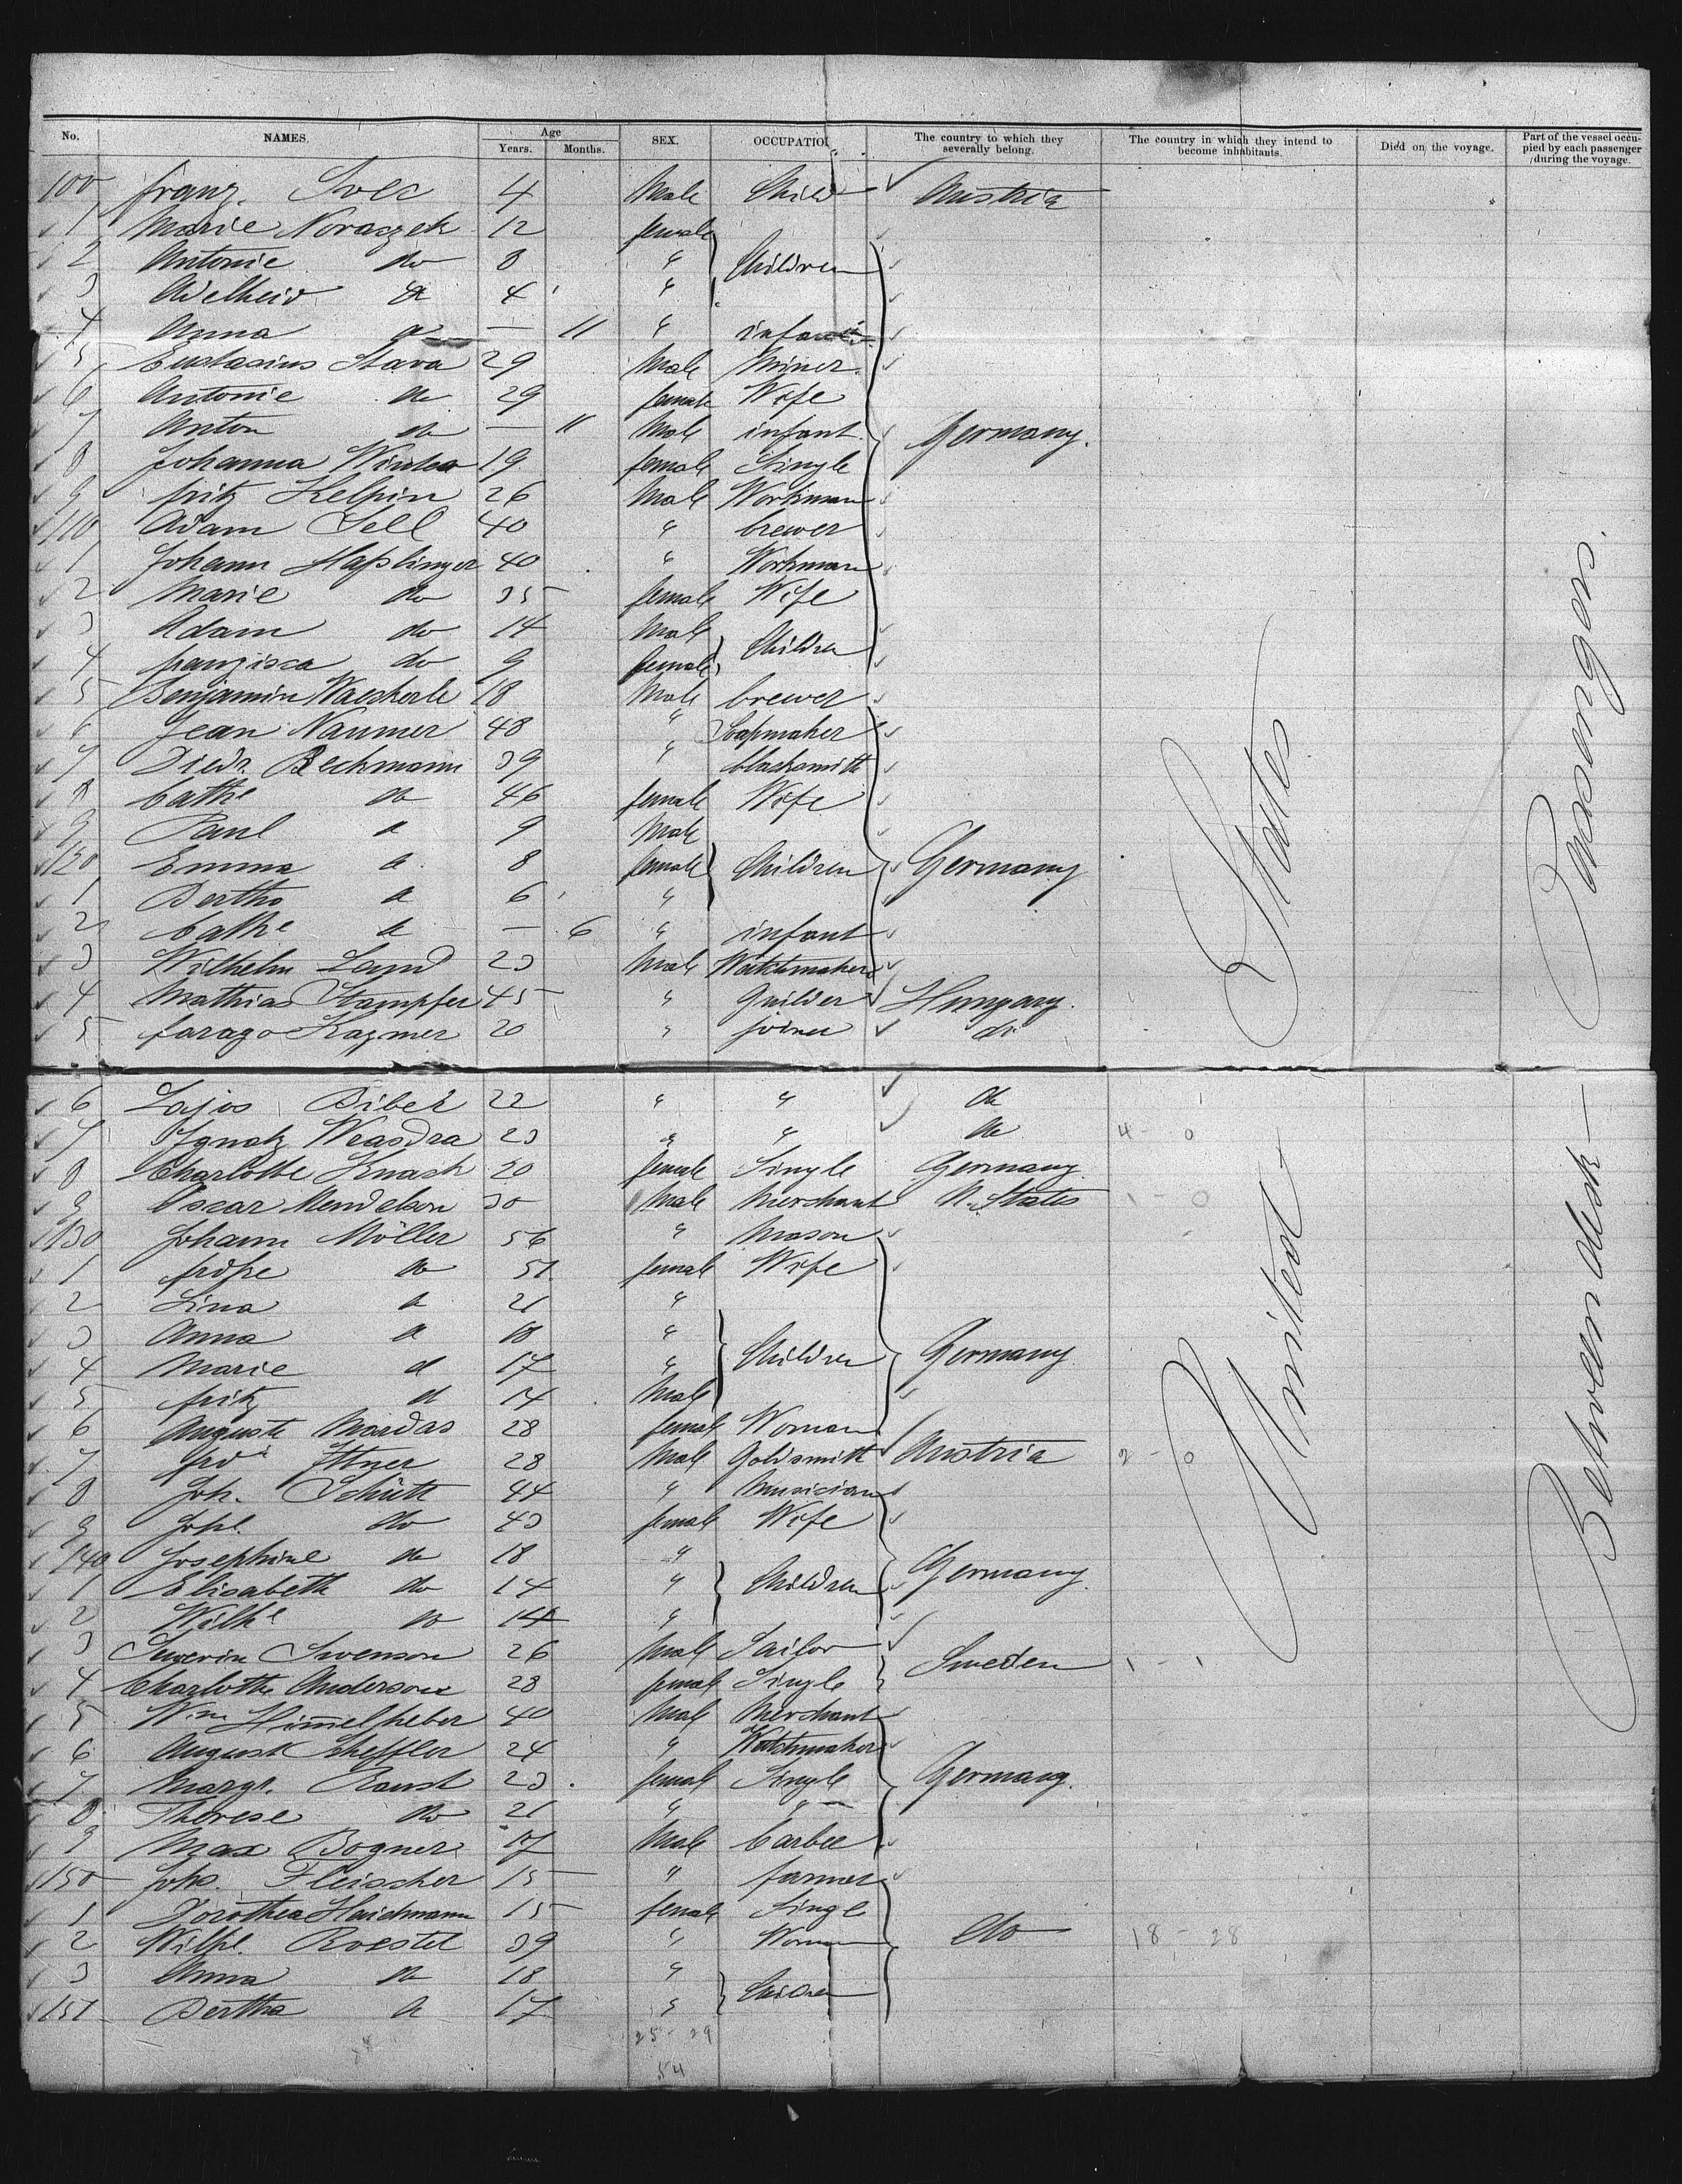 No. NAMES. Age Years. Months. SEX. OCCUPATION The country to which they severally belong. The country in which they intend to become inhabitants. Died on the voyage. Part of the vessel occupied by each passenger during the voyage.
100 Franz Svec 4 Male Child Austria
1 Marie Novaczek 12 female
2 Antonie do 8 " Children
3 Adelheid do 4 "
4 Anna do — 11 " infant
5 Eustasius Stava 29 Male Miner
6 Antonie do 29 female Wife
7 Anton do — 11 Male infant Germany.
8 Johanna 19 female Single
9 Fritz Kelpin 26 Male Workman
110 Adam Sell 40 " brewer
1 Johann Haßlinger 40 " Workman
2 Marie do 35 female Wife
3 Adam do 14 Male Children
4 Franzisca do 9 female
5 Benjamin Waeckerle 18 Male brewer
6 Jean Naumer 48 " Soapmaker
7 Diedr. Beckmann 39 " blacksmith
8 Cathe do 46 female Wife
9 Paul do 9 Male
120 Emma do 8 female Children Germany
1 Bertha do 6 "
2 Cathe do — 6 " infant
3 Wilhelm Land 23 Male Watchmaker
4 Mathias Stampfer 45 " Guilder Hungary.
5 Farago Kazmer 20 " joiner do
6 Lajos Biber 22 " " do
7 Ignatz Weasdra 23 " " do 4 - 0
8 Charlotte Knash 20 female Single Germany
9 Oscar Mendelson 30 Male Merchant U. States 1 - 0
130 Johann Möller 56 " Mason
1 do 51 female Wife
2 Lina do 21 "
3 Anna do 18 "
4 Marie do 17 " Children Germany
5 Fritz do 14 Male
6 Auguste Mardas 28 female Woman
7 Ittner 28 Male Goldsmith Austria 2 - 0
8 Joh. Schütt 44 " Musician
9 do 43 female Wife
140 Josephine do 18 "
1 Elisabeth do 14 " Children Germany.
2 Wilhe do 14 "
3 Severin Swenson 26 Male Sailor
4 Charlotte Anderson 28 female Single Sweden 1 - 1
5 Wm Himmelheber 40 Male Merchant
6 August Scheffler 24 " Watchmaker
7 Margr. Rausch 23 female Single Germany.
8 Therese do 21 " "
9 Max Bogner 17 Male barber
150 Johs. Fleischer 15 " farmer
1 Dorothea Haidmann 15 female Single
2 Wilhe. Roestel 39 " Woman do 18 - 28
3 Anna do 18 "
151 Bertha do 17 " Children
25 - 29
54
United States
Between deck Passengers.